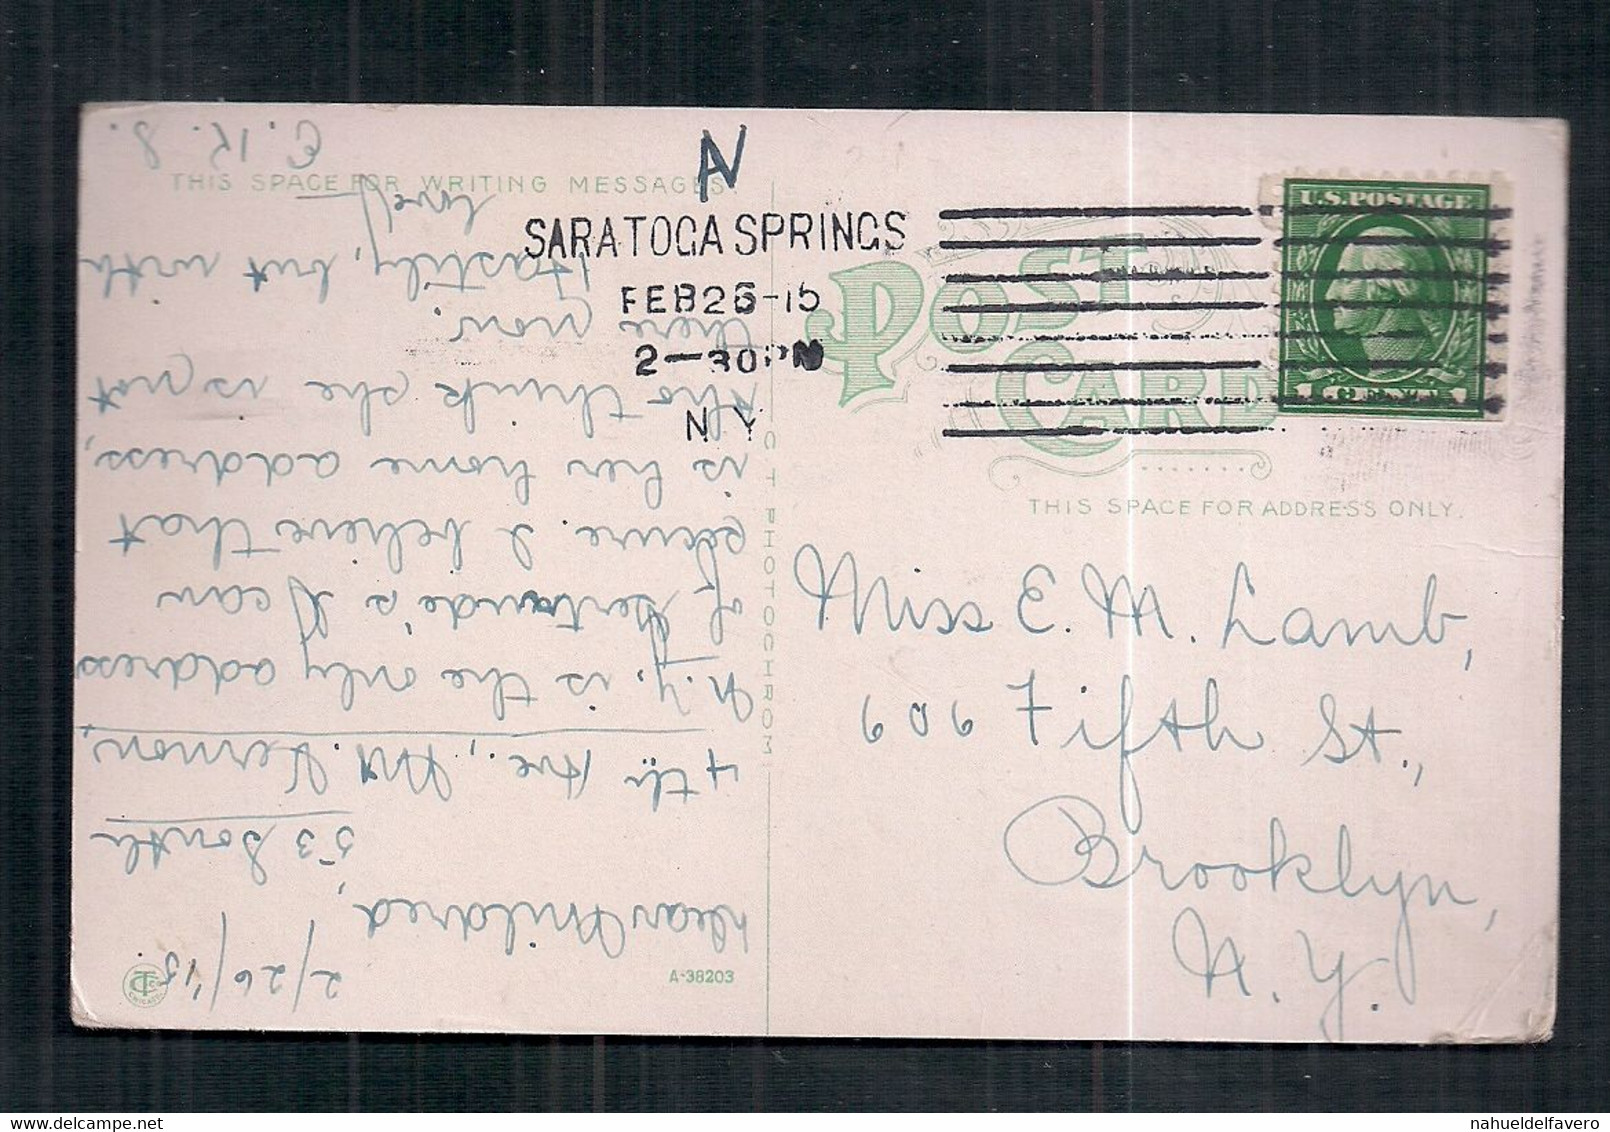 THIS SPACE FOR WRITING MESSAGES
SARATOGA SPRINGS
FEB 26-15
2-30 PM
N Y
U.S. POSTAGE
POST
CARD
THIS SPACE FOR ADDRESS ONLY.
Miss E. M. Lamb,
609 Fifth St.,
Brooklyn,
N. Y.
C T PHOTOCHROM
A-38203
CTCo
CHICAGO
2/26/'15
Dear Mildred,
53 South
4th Ave., Mt. Vernon,
N.Y. is the only address
of Gertrude's I can
secure. I believe that
is her home address,
tho think she is not
there now.
Hastily, but with
love,
E. R. S.
nahueldelfavero